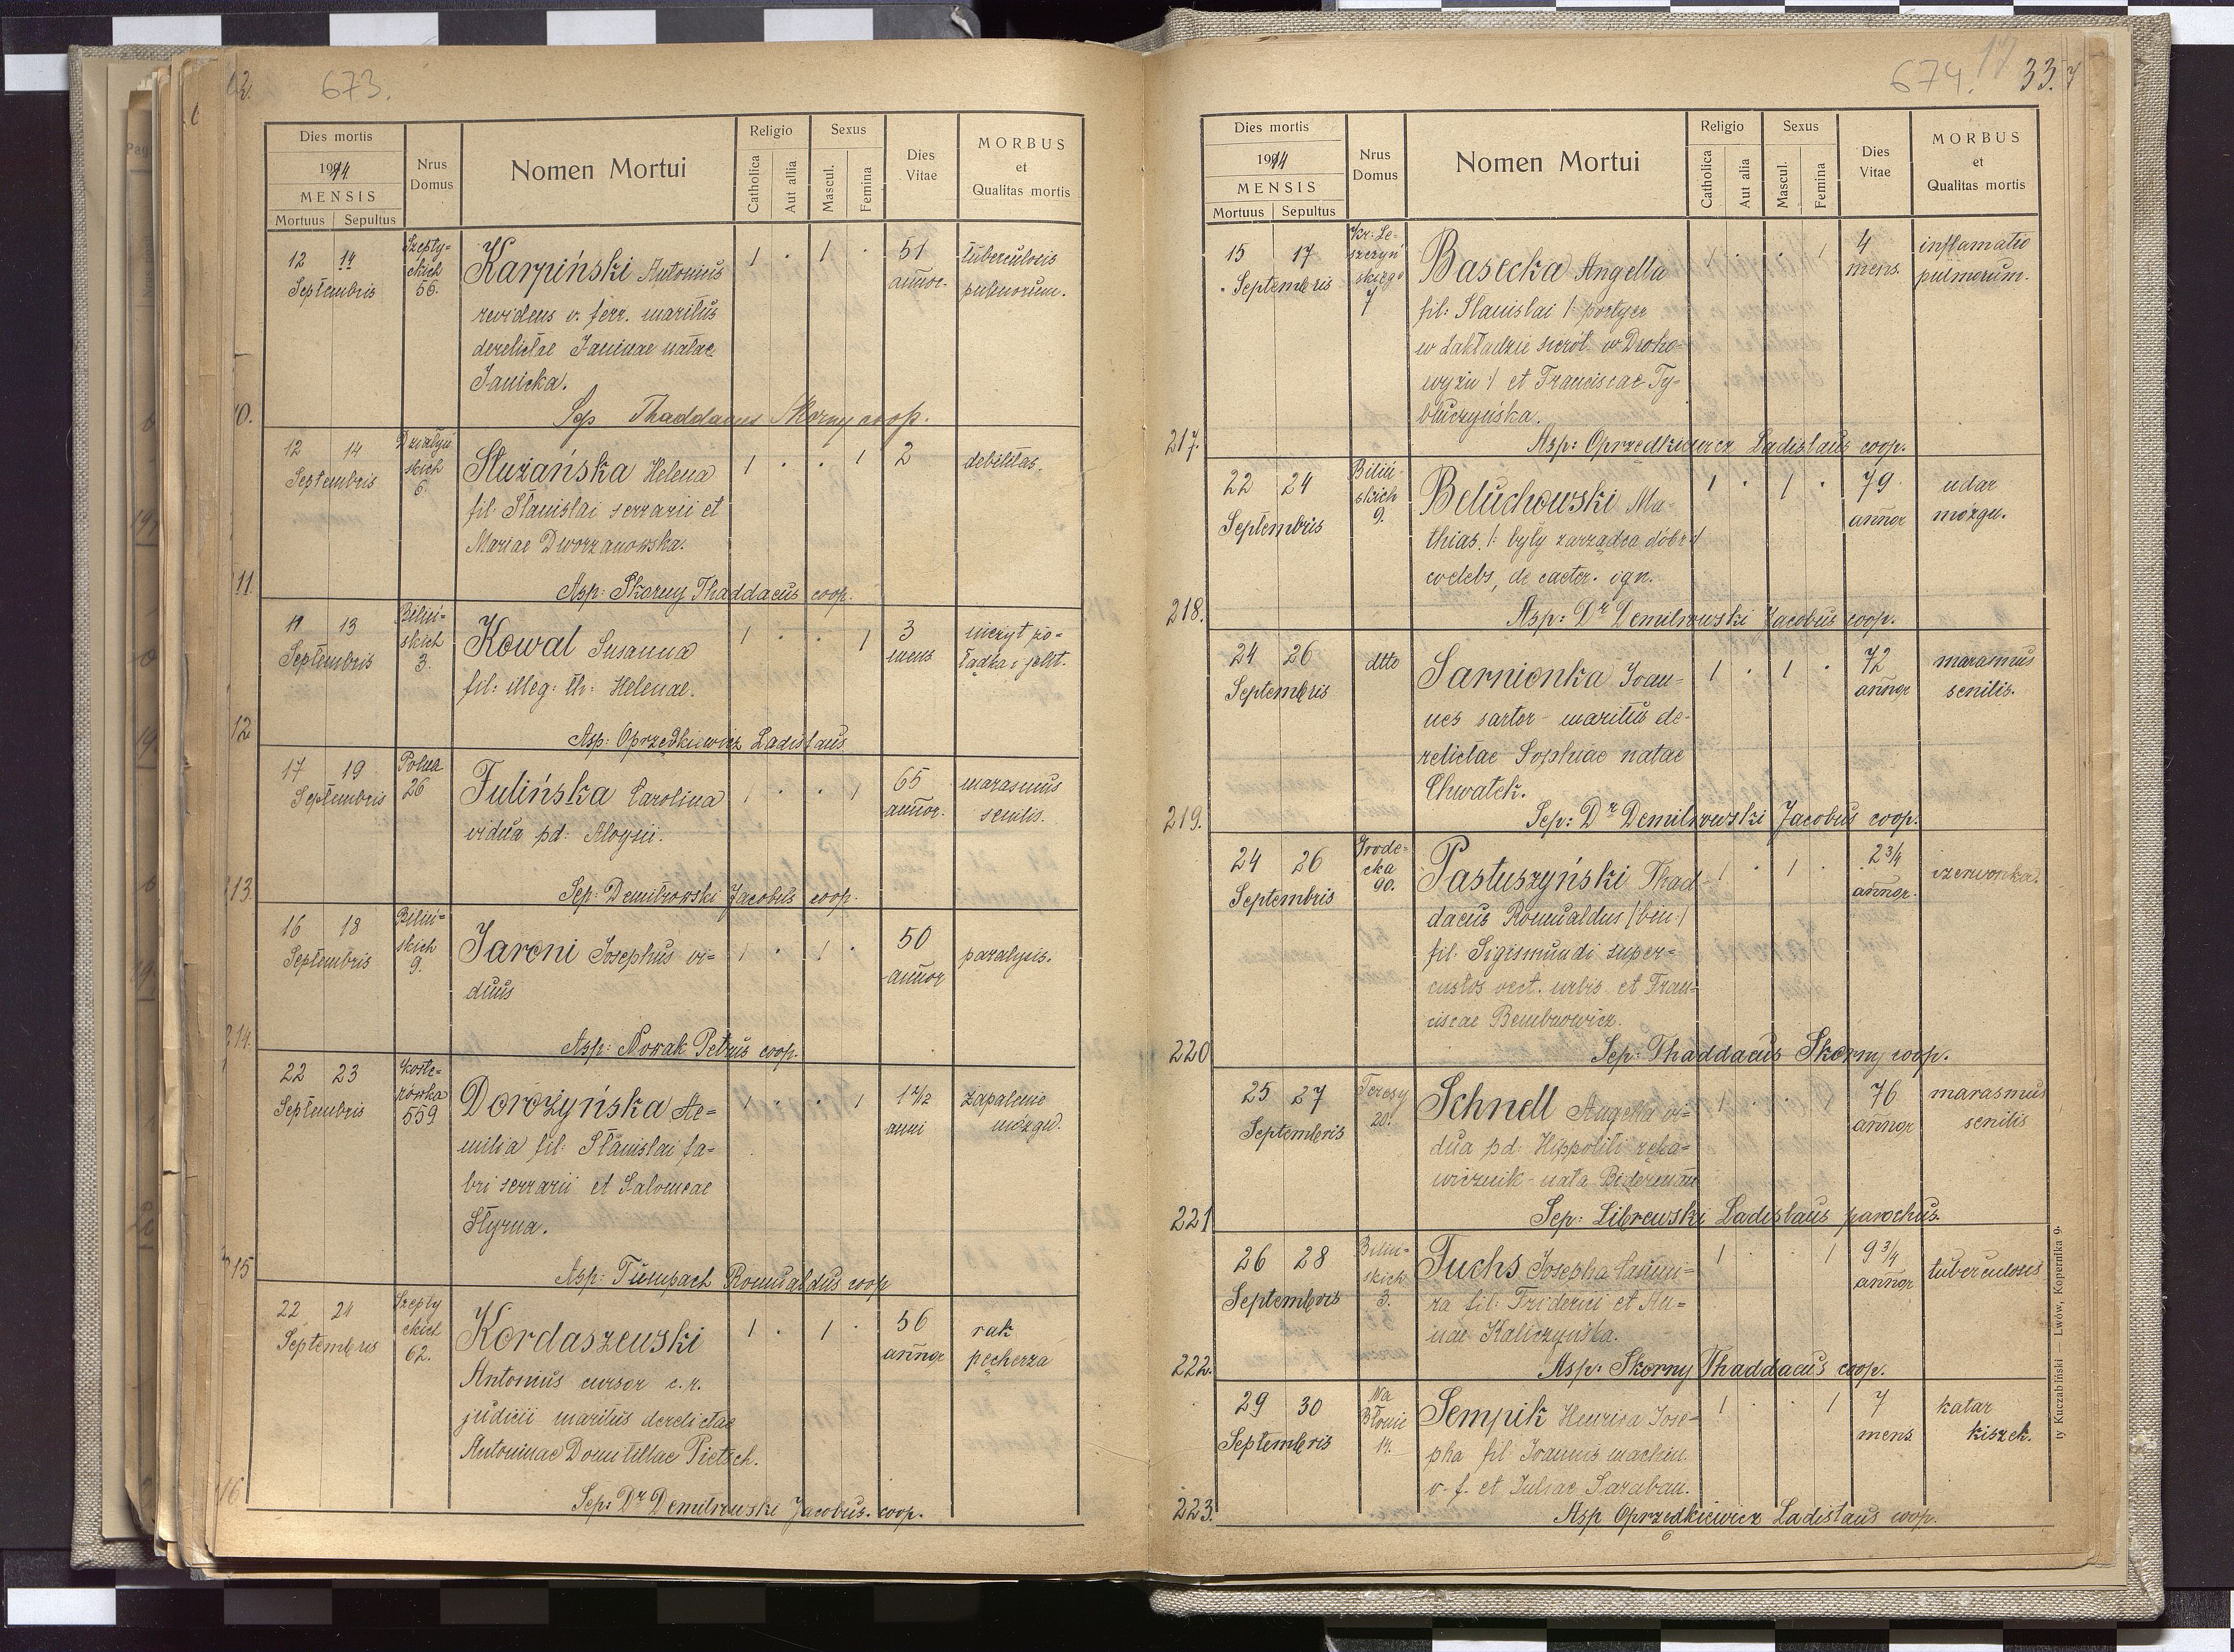 673.
Dies mortis
1914
MENSIS
Mortuus Sepultus
Nrus Domus
Nomen Mortui
Religio
Catholica
Aut allia
Sexus
Mascul.
Femina
Dies Vitae
MORBUS
et
Qualitas mortis
12 14 Szepty= Karpiński Antonius 1 · 1 · 51 tuberculosis
Septembris ckich 56. revidens v. ferr. maritus annor. pulmorum.
derelictae Janinae natae
Janicka.
10. Sep Thaddaeus Skorny coop.
12 14 Działyń Służańska Helena 1 · · 1 2 debilitas.
Septembris skich 6. fil. Stanislai serrarii et
Mariae Dworzanowska.
11. Asp: Skorny Thaddaeus coop.
11 13 Biliń= Kowal Susanna 1 · · 1 3 nieżyt żo=
Septembris skich 3. fil: illeg: th: Helenae. mens łądka i jelit.
12 Asp: Oprzędkiewicz Ladislaus
17 19 Polna Julińska Carolina 1 · · 1 65 marasmus
Septembris 26 vidua pd: Aloysii. annor. senilis.
13. Sep: Demitrowski Jacobus coop.
16 18 Biliń= Jaroni Josephus vi= 1 · 1 · 50 paralysis.
Septembris skich 9. duus annor
214. Asp: Nowak Petrus coop.
22 23 Koste= Dorożyńska Ae= 1 · · 1 1 1/2 zapalenie
Septembris rówka 559 milia fil: Stanislai fa= anni mózgu.
bri serrarii et Salomeae
Styrna.
15 Asp: Tumpach Romualdus coop
22 24 Szepty Kordaszewski 1 · 1 · 56 rak
Septembris ckich 62. Antonius cursor c.r. annor pęcherza
judicii maritus derelictae
Antoninae Domitillae Pietsch.
16. Sep: Dr Demitrowski Jacobus. coop.
674. 17 33.
Dies mortis
1914
MENSIS
Mortuus Sepultus
Nrus Domus
Nomen Mortui
Religio
Catholica
Aut alia
Sexus
Mascul.
Femina
Dies Vitae
MORBUS
et
Qualitas mortis
15 17 Kr: Le= Basecka Angella 1 · · 1 4 inflamatio
Septembris szczyń skiego 7 fil: Stanislai /: portyer mens. pulmorum.
w Zakładzie sierot. w Droho=
wyżu / et Franciscae Ty=
bluczyńska.
217. Asp: Oprzędkiewicz Ladislaus coop.
22 24 Biliń= Beluchowski Ma= 1 · 1 · 79 udar
Septembris skich 9. thias. /: były zarządca dóbr:/ annor mózgu.
coelebs, de caeter. ign.
218. Asp: Dr Demitrowski Jacobus coop.
24 26 dtto Sarnionka Joan= 1 · 1 · 72 marasmus
Septembris nes sartor - maritus de- annor senilis.
relictae Sophiae natae
Chwatek.
219. Sep: Dr Demitrowski Jacobus coop.
24 26 Grode= Pastuszyński Thad= 1 · 1 · 2 3/4 czerwonka.
Septembris cka 90. daeus Romualdus /bin:/ annor.
fil. Sigismundi super=
custos vect. urbis et Fran=
ciscae Bembnowicz.
220 Sep: Thaddaeus Skorny coop.
25 27 Teresy Schnell Angella vi= 1 · · 76 marasmus
Septembris 20. dua pd: Hippoliti ręka= annor senilis
wicznik - nata Bidermann
221 Sep: Librewski Ladislaus parochus.
26 28 Biliń= Fuchs Josepha Casimi= 1 · · 1 9 3/4 tuberculosis
Septembris skich 3. ra fil: Friderici et An= annor
nae Kaliczyńska.
222. Asp: Skorny Thaddaeus coop.
29 30 Na Sempik Henrica Jose= 1 · · 1 7 katar
Septembris Błonie 14. pha fil Joannis machin. mens. kiszek.
v. f. et Juliae Saraban.
223. Asp Oprzędkiewicz Ladislaus coop.
6
ty Kuczabiński — Lwów, Kopernika 9.